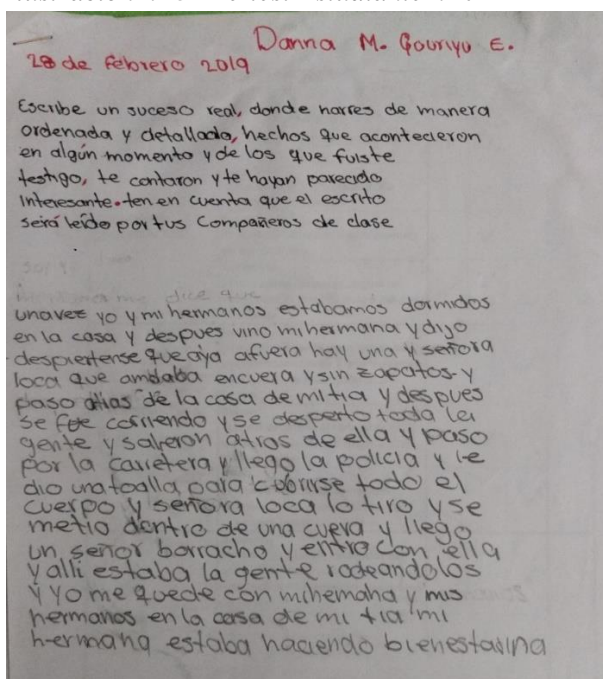 Danna M. Gouriyu E.
28 de Febrero 2019
Escribe un suceso real, donde narres de manera
ordenada y detallada, hechos que acontecieron
en algún momento y de los que fuiste
testigo, te contaron y te hayan parecido
Interesante. ten en cuenta que el escrito
será leído por tus Compañeros de clase
dice que
unavez yo y mi hermanos estabamos dormidos
en la casa y despues vino mihermana y dijo
despiertense que aya afuera hay una y señora
loca que amdaba encuera y sin zapatos y
paso atias de la casa de mi tia y despues
se fue corriendo y se desperto toda la
gente y salieron atros de ella y paso
por la carretera y llego la policia y le
dio una toalla para cubrirse todo el
cuerpo y señora loca lo tiro y se
metio dentro de una cueva y llego
un señor borracho y entro con ella
y alli estaba la gente rodeandolos
y yo me quede con mihemana y mis
hermanos en la casa de mi tia mi
hermana estaba haciendo bienestarina